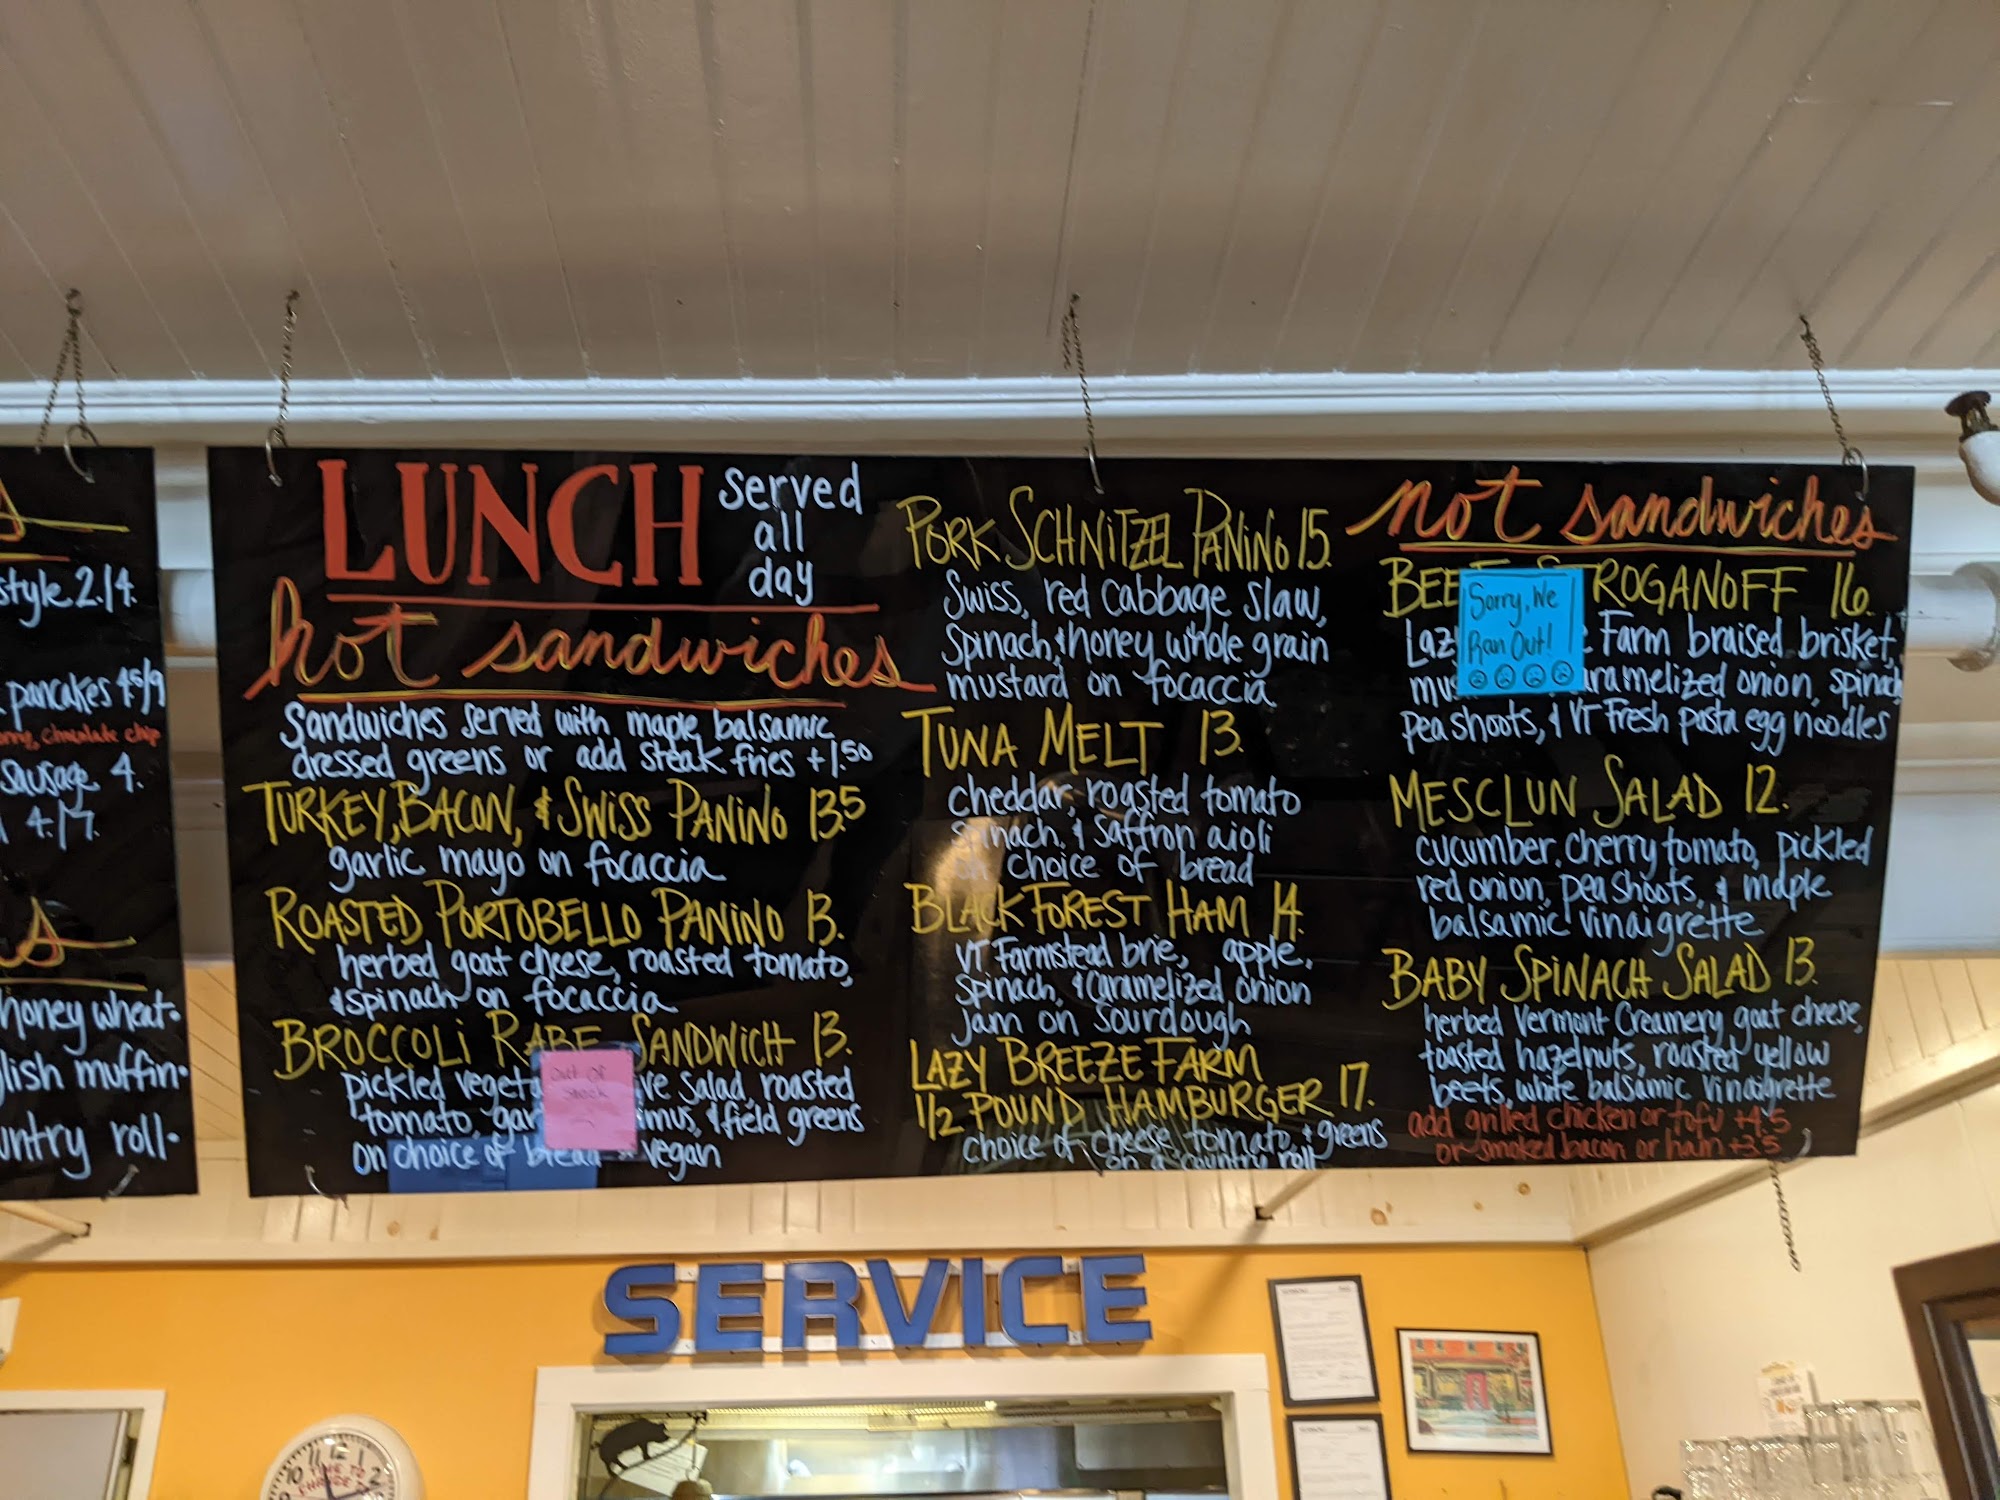 style 2./4.
pancakes 4.5/9
chocolate chip
Sausage 4.
4./7.
honey wheat.
lish muffin.
untry roll.
LUNCH served
all
day
hot sandwiches
Sandwiches served with maple balsamic
dressed greens or add steak fries +1.50
TURKEY, BACON, & SWISS PANINO 13.5
garlic mayo on focaccia
ROASTED PORTOBELLO PANINO 13.
herbed goat cheese, roasted tomato,
& spinach on focaccia
BROCCOLI RABE SANDWICH 13.
pickled veget ve salad, roasted
tomato, gar mus, & field greens
on choice of bread vegan
Out of
Stock
PORK SCHNITZEL PANINO 15.
Swiss, red cabbage slaw,
Spinach, & honey whole grain
mustard on focaccia
TUNA MELT 13.
cheddar, roasted tomato
spinach, & saffron aioli
on choice of bread
BLACK FOREST HAM 14.
VT Farmstead brie, apple,
Spinach, & caramelized onion
jam on sourdough
LAZY BREEZE FARM
1/2 POUND HAMBURGER 17.
choice of cheese, tomato, & greens
on a country roll
not sandwiches
BEEF STROGANOFF 16.
Laz Farm braised brisket,
mu ramelized onion, spinach
pea shoots, & VT Fresh pasta egg noodles
Sorry, We
Ran Out!
MESCLUN SALAD 12.
cucumber, cherry tomato, pickled
red onion, pea shoots, & maple
balsamic vinaigrette
BABY SPINACH SALAD 13.
herbed Vermont Creamery goat cheese,
toasted hazelnuts, roasted yellow
beets, white balsamic vinaigrette
add grilled chicken or tofu +4.5
or smoked bacon or ham +3.5
SERVICE
10 11 12 1 2
TIME TO